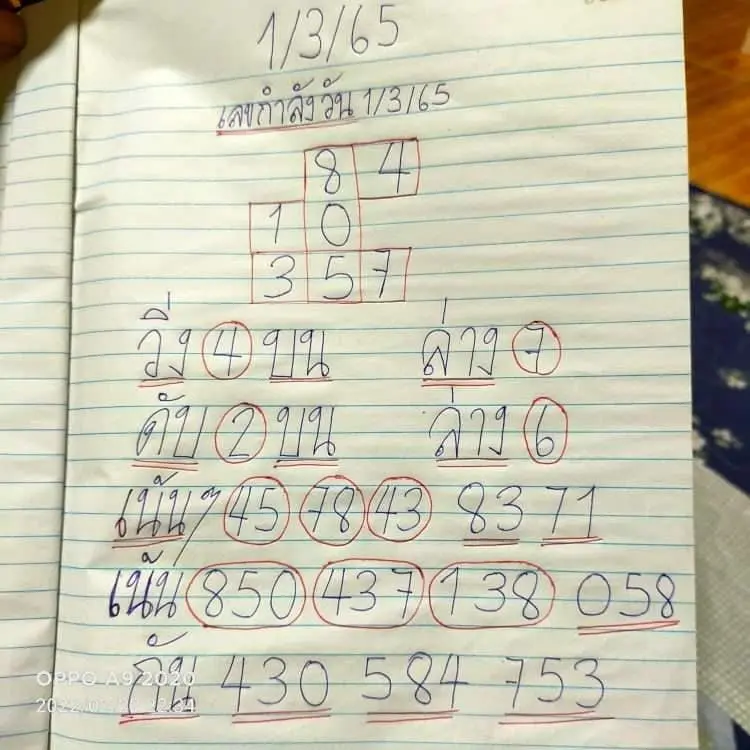 1/3/65
เลขกำลังวัน 1/3/65
8 4
1 0
3 5 7
วิ่ง 4 บน ล่าง 7
ดับ 2 บน ล่าง 6
เน้นๆ 45 78 43 83 71
เน้น 850 437 138 058
กัน 430 584 753
OPPO A9 2020